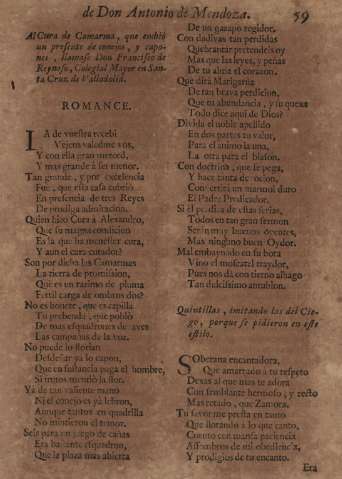 de Don Antonio de Mendoza. 59
Al Cura de Camarma, que embiò
un presente de conejos, y capo-
nes, llamase Don Francisco de
Reynoso, Colegial Mayor en San-
ta Cruz de Valladolid.
ROMANCE.
LA de vuestra recebi
Vejem valodme vos,
Y con ella gran merced,
Y mas grande à ser menor.
Tan grande, y por excelencia
Fue, que essa casa cubriò
En presencia de tres Reyes
De prodiga admiracion.
Quien hizo Cura à Alexandro,
Que su magna condicion
Es la que ha menester cura,
Y aun el cura curador?
Son por dicha las Camarmas
La tierra de promission,
Que es un razimo de pluma
Fertil carga de ombros dos?
No es bonete, que es capilla
Tu prebenda, que poblò
De mas esquadrones de aves
Las campañas de la voz.
No puede lo florian
Desdeñar ya lo capon,
Que en sustancia paga el hombre,
Si frutos mintiò la flor.
Yà de tan valiente mano
Ni el conejo es yà lebron,
Aunque tantos en quadrilla
No mintieron el temor.
Seis para un juego de cañas
Era bastante esquadron,
Que la plaza mas abierta
De un gazapo regidor.
Con dadivas tan perdidas
Quebrantar pretendeis oy
Mas que las leyes, y peñas
De tu alma el corazon.
Que dirà Marigarnia
De tan brava perdicion,
Que tu abundancia, y su quexa
Todo dice aqui de Dios?
Divida el noble apellido
En dos partes tu valor,
Para el animo la una,
La otra para el blason.
Con doctrina, que se pega,
Y hace tinta de nacion,
Convertirà un manual duro
El Padre Predicador.
Si el predica de estas ferias,
Todos en tan gran sermon
Seràn muy buenos oyentes,
Mas ninguno buen Oydor.
Mal embaynado en su bota
Vino el moscatel traydor,
Pues nos dà con tierno alhago
Tan dulcissimo antubion.
Quintillas, imitando las del Cie-
go, porque se pidieron en este
estilo.
SOberana encantadora,
Que amarrado à tu respeto
Dexas al que mas te adora
Con semblante hermoso, y recto
Mas retado, que Zamora.
Tu favor me presta en tanto
Que llorando à lo que canto,
Cuento con mucha paciencia
Assombros de mi obediencia,
Y prodigios de tu encanto.
Era